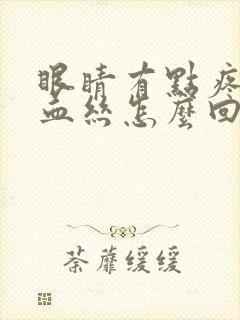 眼睛有點疼
血絲怎麼回
荼蘼緩緩